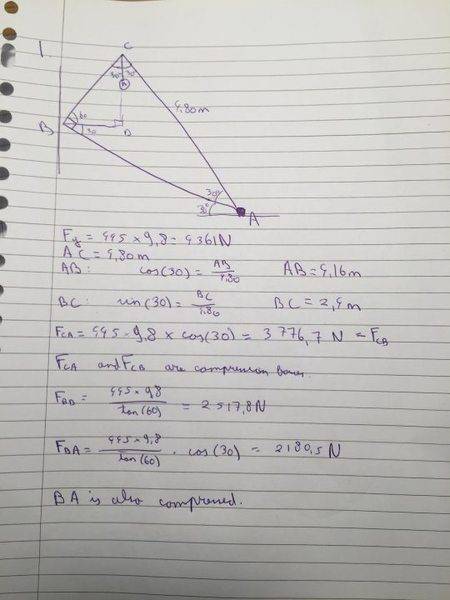 1
C
30° 30°
4,80m
60
B 30 D
30°
30°
A
Fg = 445 × 9,8 = 4361N
AC = 4,80m
AB: cos(30) = AB/4,80 AB = 4,16m
BC: sin(30) = BC/4,80 BC = 2,4m
FCA = 445 · 9,8 × cos(30) = 3776,7 N = FCB
FCA and FCB are compression forces.
FBD = 445 × 9,8 / tan(60) = 2517,8N
FBA = 445 × 9,8 / tan(60) · cos(30) = 2180,5 N
BA is also compressed.